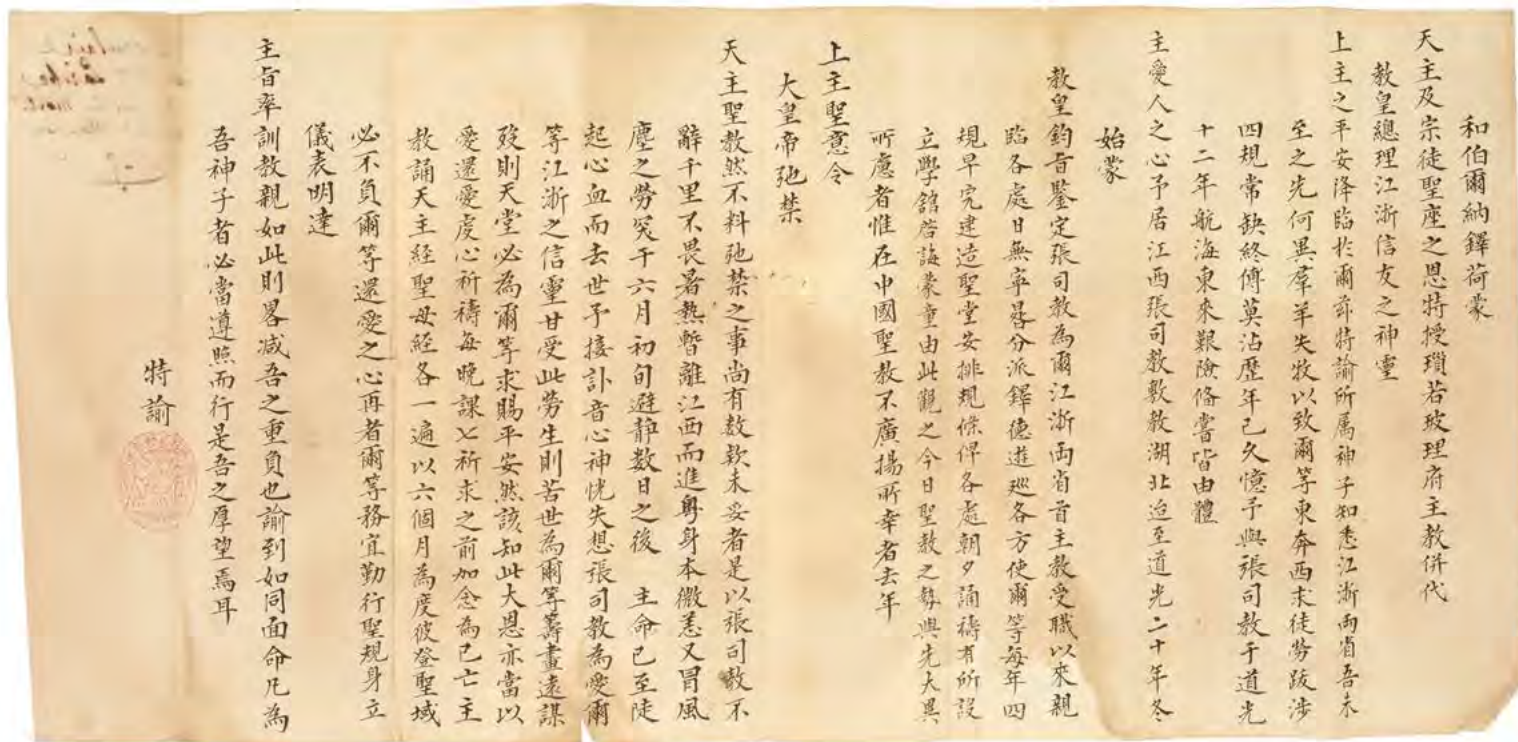 和伯爾納鐸荷蒙
天主及宗徒聖座之恩特授瑣若玻理府主教併代
教皇總理江浙信友之神靈
上主之平安降臨於爾茲特諭所屬神子知悉江浙兩省吾未
至之先何異羣羊失牧以致爾等東奔西求徒勞跋涉
四規常缺終傅莫沾歷年已久憶予與張司教于道光
十二年航海東來艱險備嘗皆由體
主愛人之心予居江西張司教敷教湖北迨至道光二十年冬
始蒙
教皇鈞旨鑒定張司教為爾江浙兩省首主教受職以來親
臨各處日無寧晷分派鐸德遊巡各方使爾等每年四
規早完建造聖堂安排規條俾各處朝夕誦禱有所設
立學舘啓誨蒙童由此觀之今日聖教之勢與先大異
所慮者惟在中國聖教不廣揚所幸者去年
上主聖意令
大皇帝弛禁
天主聖教然不料弛禁之事尚有数欵未妥者是以張司教不
辭千里不畏暑熱暫離江西而進粵身本微恙又冒風
塵之勞突于六月初旬避静数日之後 主命已至陡
起心血而去世予接訃音心神恍失想張司教為愛爾
等江浙之信靈甘受此勞生則苦世為爾等籌畫遠謀
歿則天堂必為爾等求賜平安然該知此大恩亦當以
愛還愛虔心祈禱每晚課七祈求之前加念為已亡主
教誦天主經聖母經各一遍以六個月為度彼登聖域
必不負爾等還愛之心再者爾等務宜勤行聖規身立
儀表明達
主旨率訓教親如此則畧減吾之重負也諭到如同面命凡為
吾神子者必當遵照而行是吾之厚望焉耳
特諭